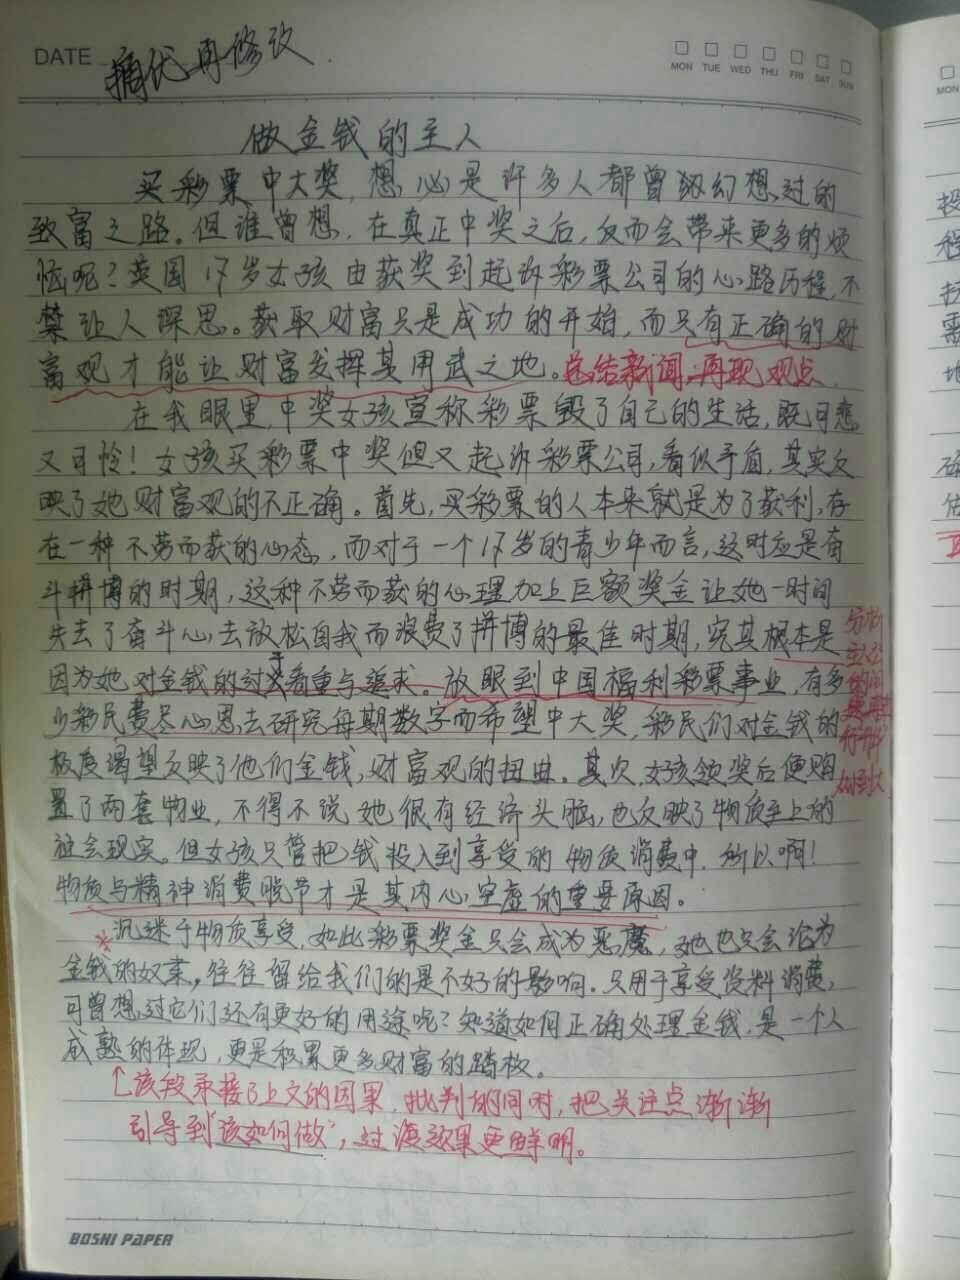 DATE 摘优再修改
MON TUE WED THU FRI SAT SUN
做金钱的主人
买彩票中大奖,想必是许多人都曾级幻想过的
致富之路。但谁曾想,在真正中奖之后,反而会带来更多的烦
恼呢?英国17岁女孩由获奖到起诉彩票公司的心路历程,不
禁让人深思。获取财富只是成功的开始,而只有正确的财
富观才能让财富发挥其用武之地。总结新闻,再现观点
在我眼里,中奖女孩宣称彩票毁了自己的生活,既可悲
又可怜!女孩买彩票中奖但又起诉彩票公司,看似矛盾,其实反
映了她财富观的不正确。首先,买彩票的人本来就是为了获利,存
在一种不劳而获的心态,而对于一个17岁的青少年而言,这时应是奋
斗拼博的时期,这种不劳而获的心理加上巨额奖金让她一时间
失去了奋斗心,去放松自我而浪费了拼博的最佳时期,究其根本是
因为她对金钱的过于看重与追求。放眼到中国福利彩票事业,有多
少彩民费尽心思去研究每期数字而希望中大奖,彩民们对金钱的
极度渴望反映了他们金钱,财富观的扭曲。其次,女孩领奖后便购
置了两套物业,不得不说她很有经济头脑,也反映了物质至上的
社会现实。但女孩只管把钱投入到享受的物质消费中,所以啊!
物质与精神消费脱节才是其内心空虚的重要原因。
分析
主人公
的问
题,进
行
从小到大
沉迷于物质享受,如此彩票奖金只会成为恶魔,她也只会沦为
金钱的奴隶,往往留给我们的是不好的影响。只用于享受资料消费,
可曾想过它们还有更好的用途呢?知道如何正确处理金钱,是一个人
成熟的体现,更是积累更多财富的踏板。
↑该段承接了上文的因果,批判的同时,把关注点渐渐
引导到“该如何做”,过渡效果更鲜明。
BOSHI PAPER
MON